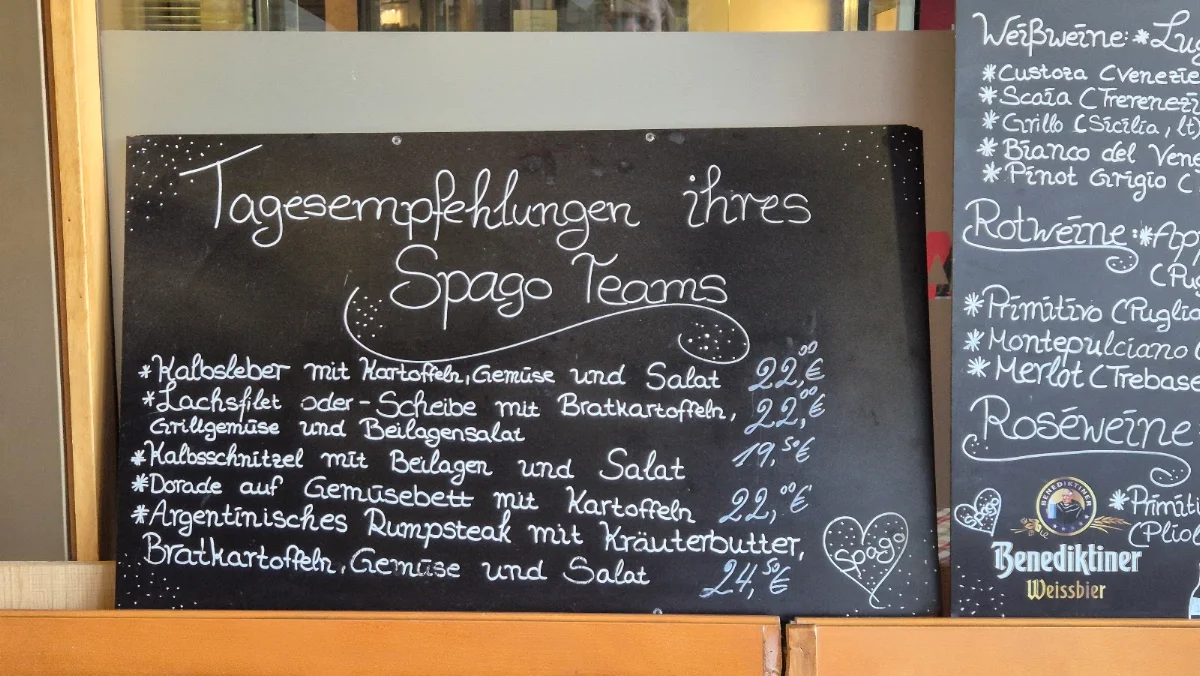 Tagesempfehlungen ihres
Spago Teams
*Kalbsleber mit Kartoffeln, Gemüse und Salat 22,00€
*Lachsfilet oder-Scheibe mit Bratkartoffeln, 22,00€
Grillgemüse und Beilagensalat
*Kalbsschnitzel mit Beilagen und Salat 19,50€
*Dorade auf Gemüsebett mit Kartoffeln 22,00€
*Argentinisches Rumpsteak mit Kräuterbutter,
Bratkartoffeln, Gemüse und Salat 24,50€
Spago
Weißweine: *Lug
*Custoza (Venezie
*Scaia (Trerenezi
*Grillo (Sicilia, lt)
*Bianco del Vene
*Pinot Grigio (
Rotweine: *App
(Pug
*Primitivo (Puglia
*Montepulciano (
*Merlot (Trebase
Roséweine
*Primit
(Pliol
BENEDIKTINER
Benediktiner
Weissbier